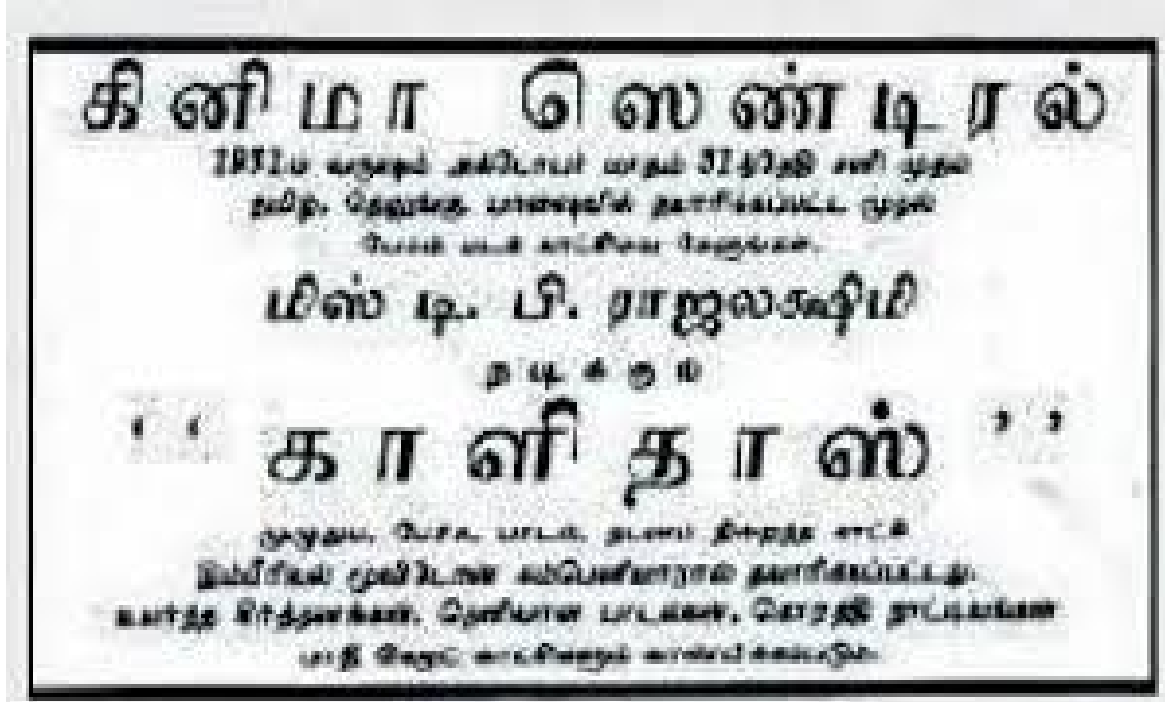 கினிமா ஸெண்டிரல்
வருஷம் அக்டோபர் மாதம் சனி முதல்
தமிழ், தெலுங்கு பாஷையில் தயாரிக்கப்பட்ட முதல்
பேசும் படக் காட்சியை கேளுங்கள்.
மிஸ் டி. பி. ராஜலக்ஷிமி
நடிக்கும்
“காளிதாஸ்”
முழுதும், பேச்சு, பாடல், நடனம் நிறைந்த காட்சி
இம்பீரியல் மூவிடோன் கம்பெனியாரால் தயாரிக்கப்பட்டது.
உயர்ந்த கீர்த்தனங்கள், தெளிவான பாடல்கள், கொறத்தி நாட்டியங்கள்